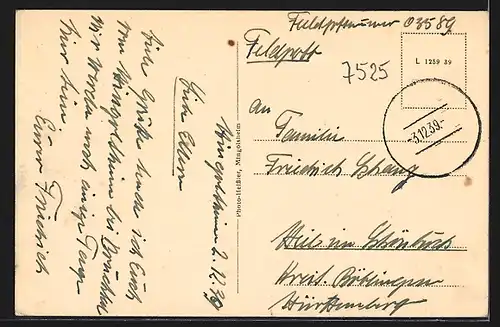 Feldpostnummer 03589
Feldpost
L 1289 39
7525
-3.12.39.-
An
Familie
Friedrich
Weil im Schönbuch
Kreis Böblingen
Württemberg
Photo-Heißler, Mingolsheim
Mingolsheim 2.12.39
Liebe Eltern
Viele Grüße sende ich Euch
von Mingolsheim bei Bruchsal
Wir werden noch einige Tage
hier sein.
Euer Friedrich